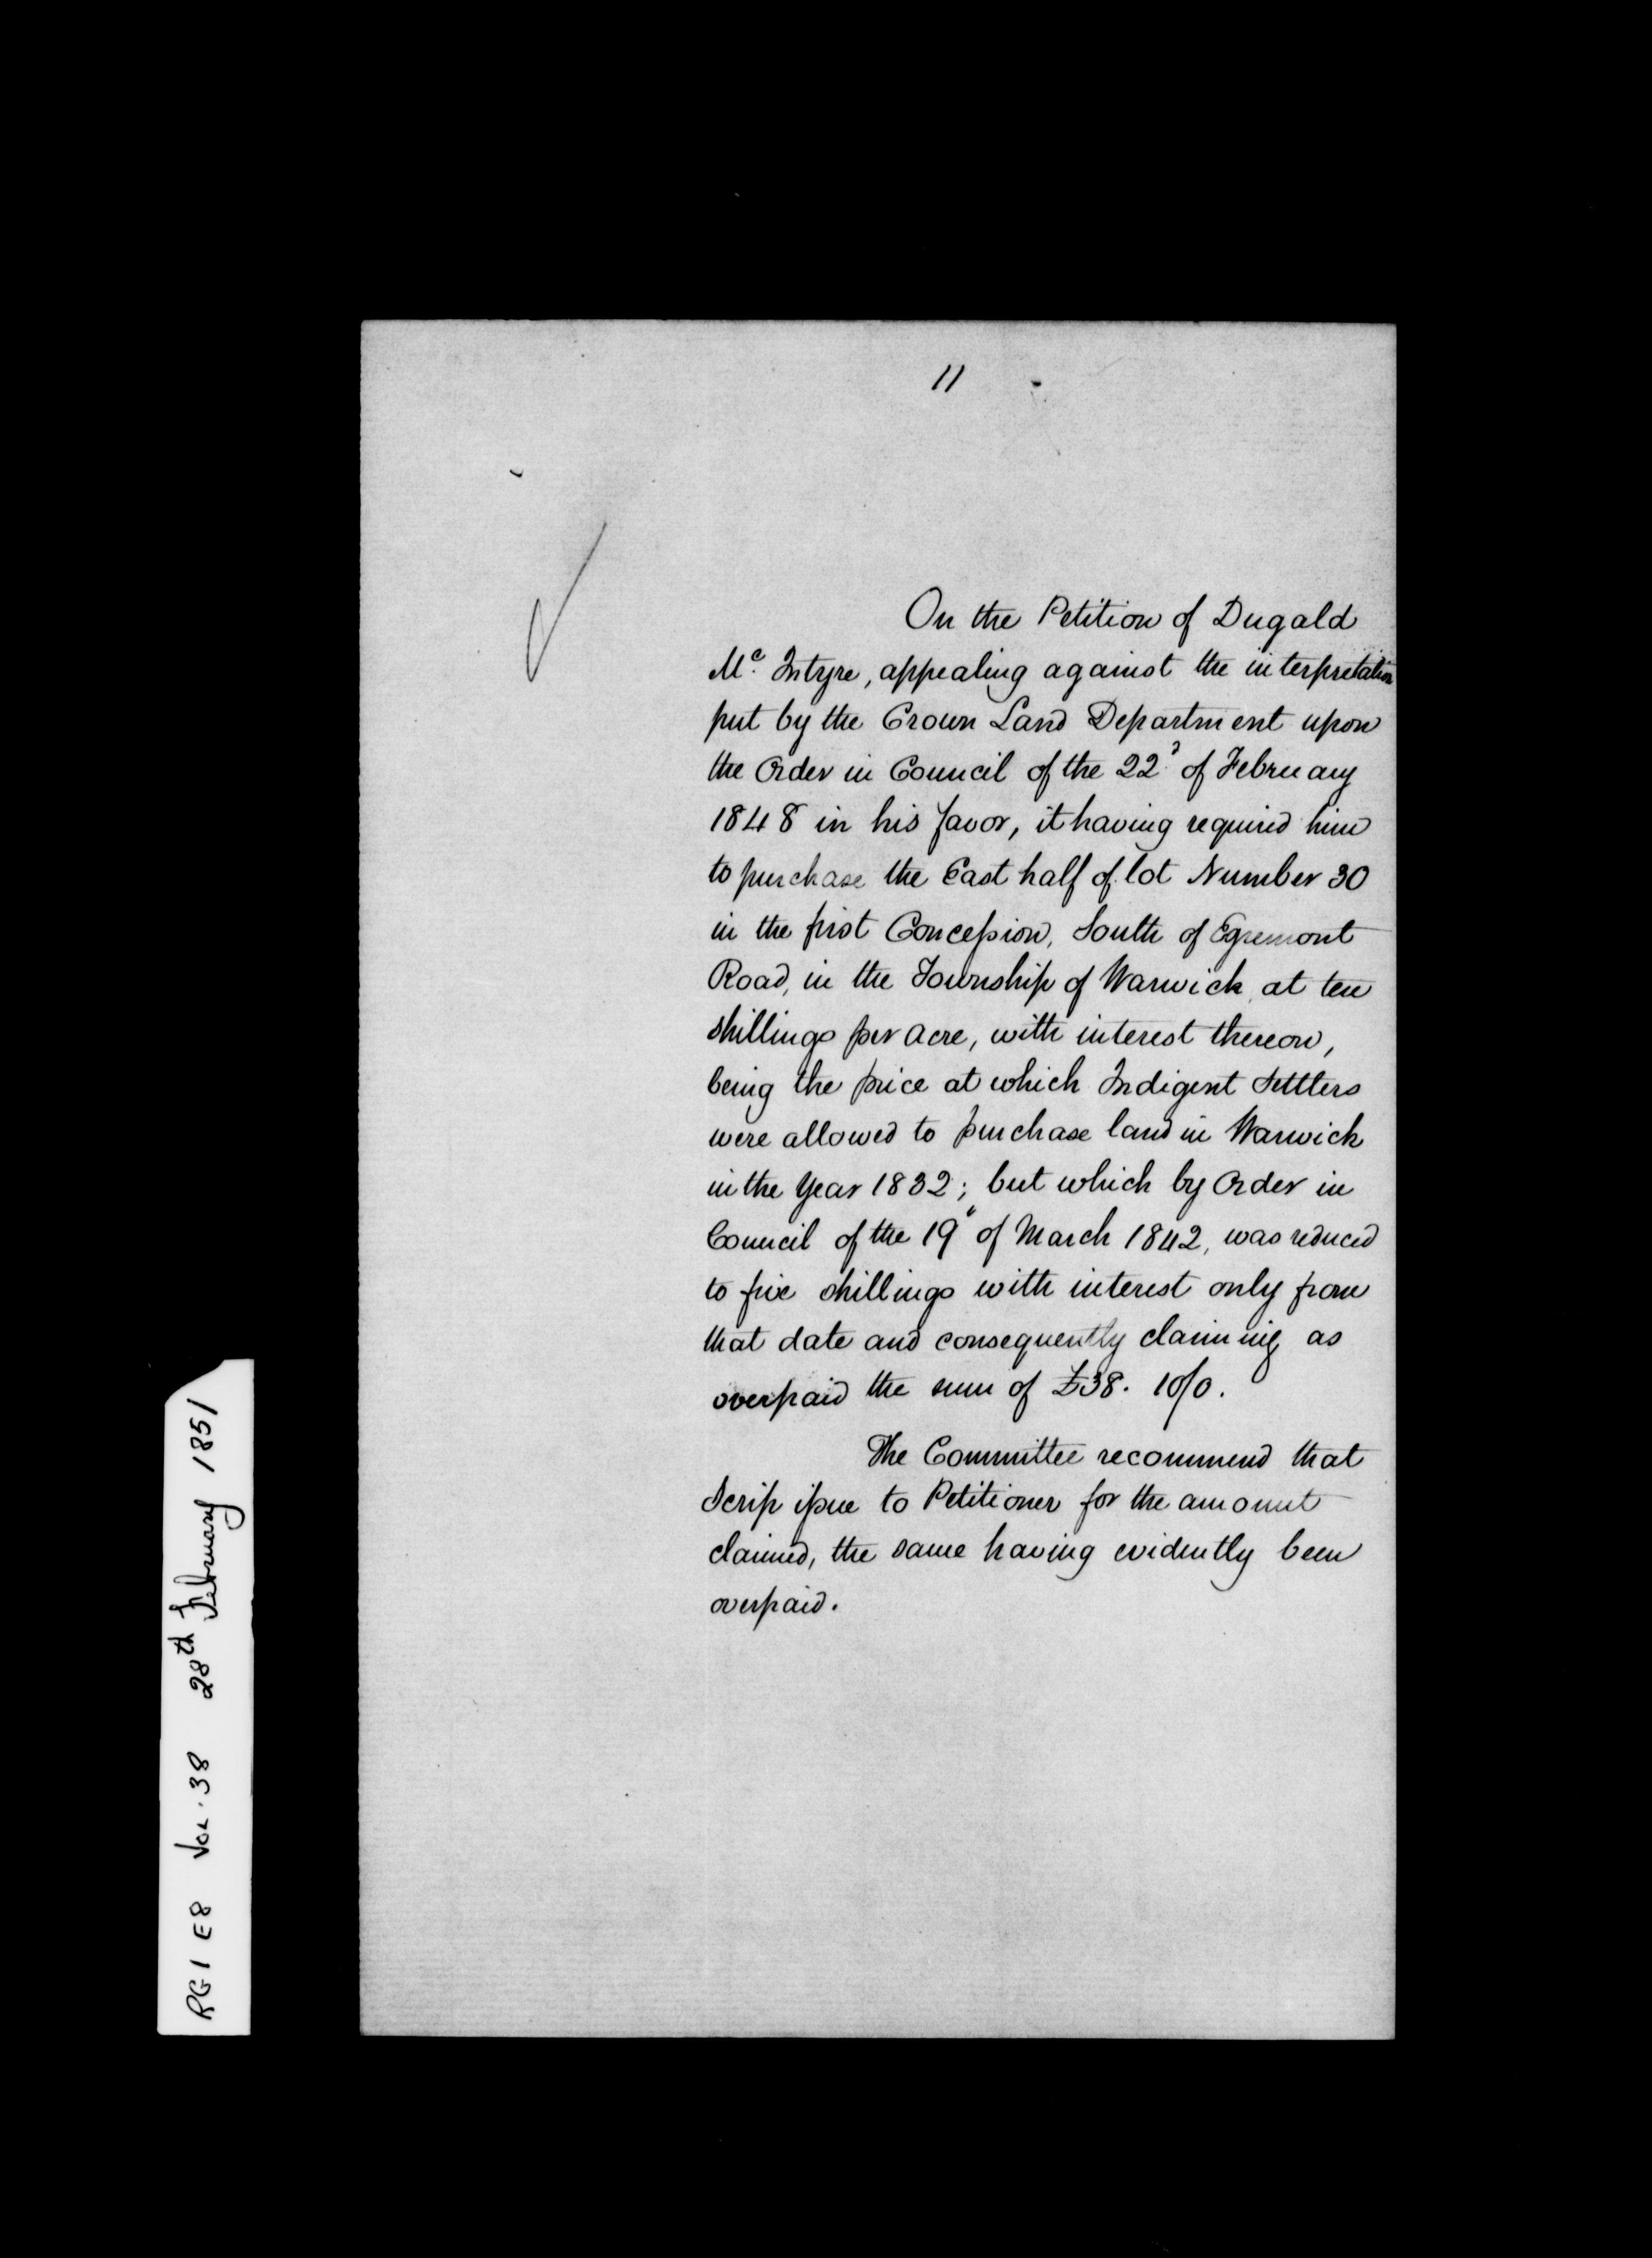 11
On the Petition of Dugald
Mc. Intyre, appealing against the interpretation
put by the Crown Land Department upon
the Order in Council of the 22d of February
1848 in his favor, it having required him
to purchase the East half of lot Number 30
in the first Concession, South of Egremont
Road, in the Township of Warwick, at ten
shillings per acre, with interest thereon,
being the price at which Indigent Settlers
were allowed to purchase land in Warwick
in the Year 1832; but which by Order in
Council of the 19" of March 1842, was reduced
to five shillings with interest only from
that date and consequently claiming as
overpaid the sum of £38. 10/0.
The Committee recommend that
Scrip issue to Petitioner for the amount
claimed, the same having evidently been
overpaid.
RG 1 E8 Vol. 38 28th February 1851